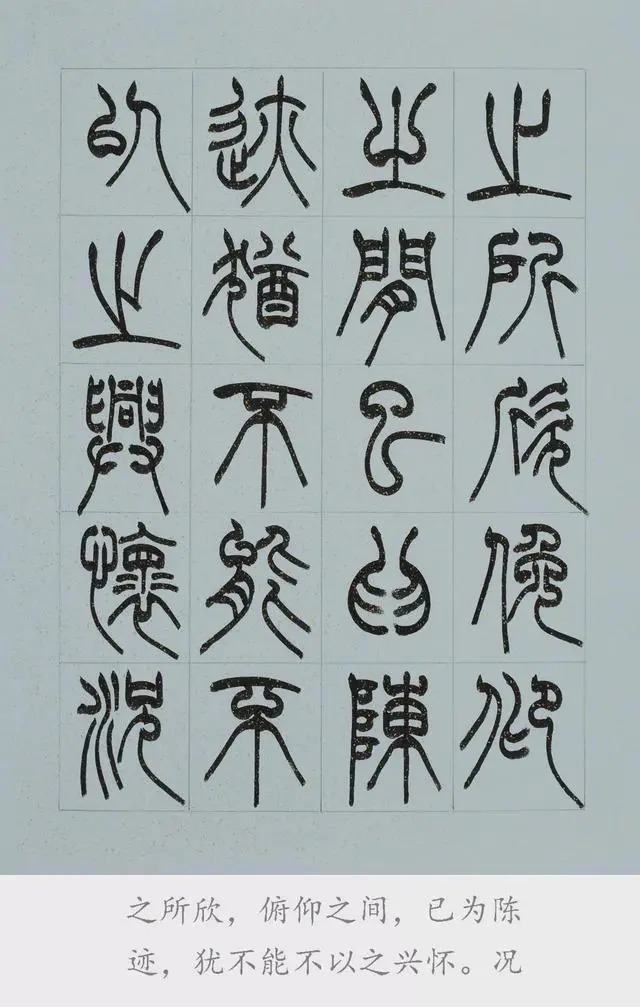 之所欣俛仰
之閒已為陳
迹猶不能不
以之興懷況
之所欣，俯仰之间，已为陈
迹，犹不能不以之兴怀。况